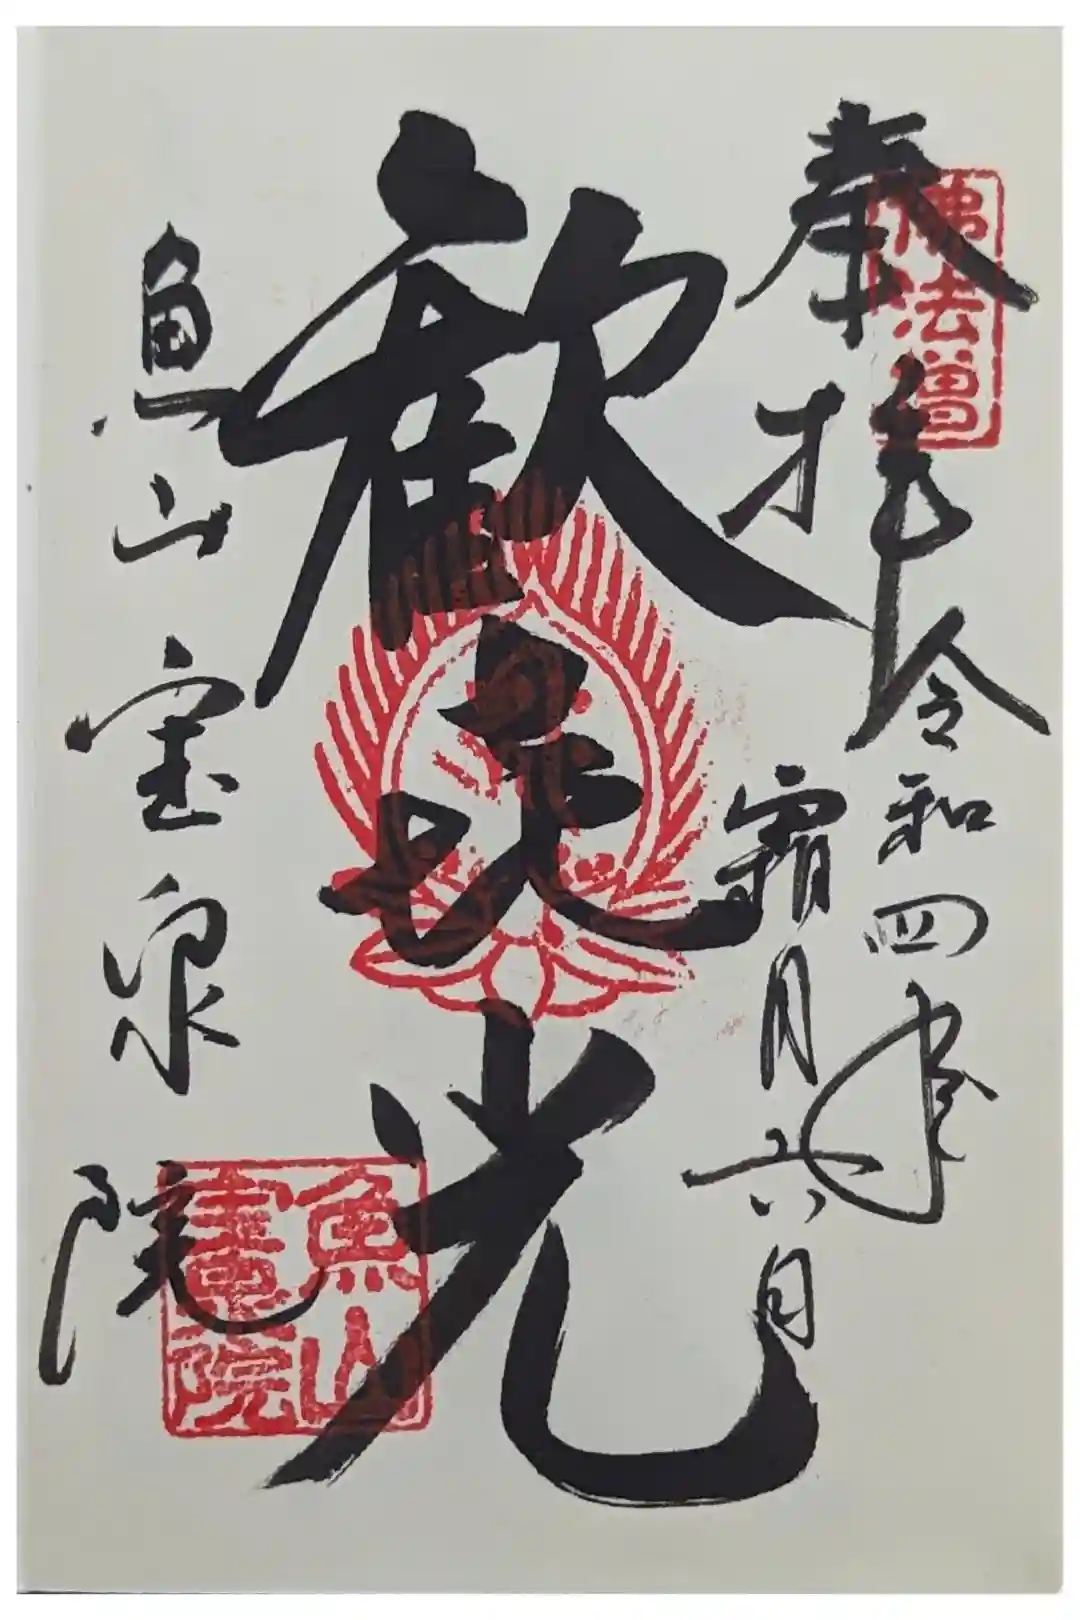 奉拝
令和四年
霜月六日
歓㐂光
魚山 宝泉院
佛法僧
魚山